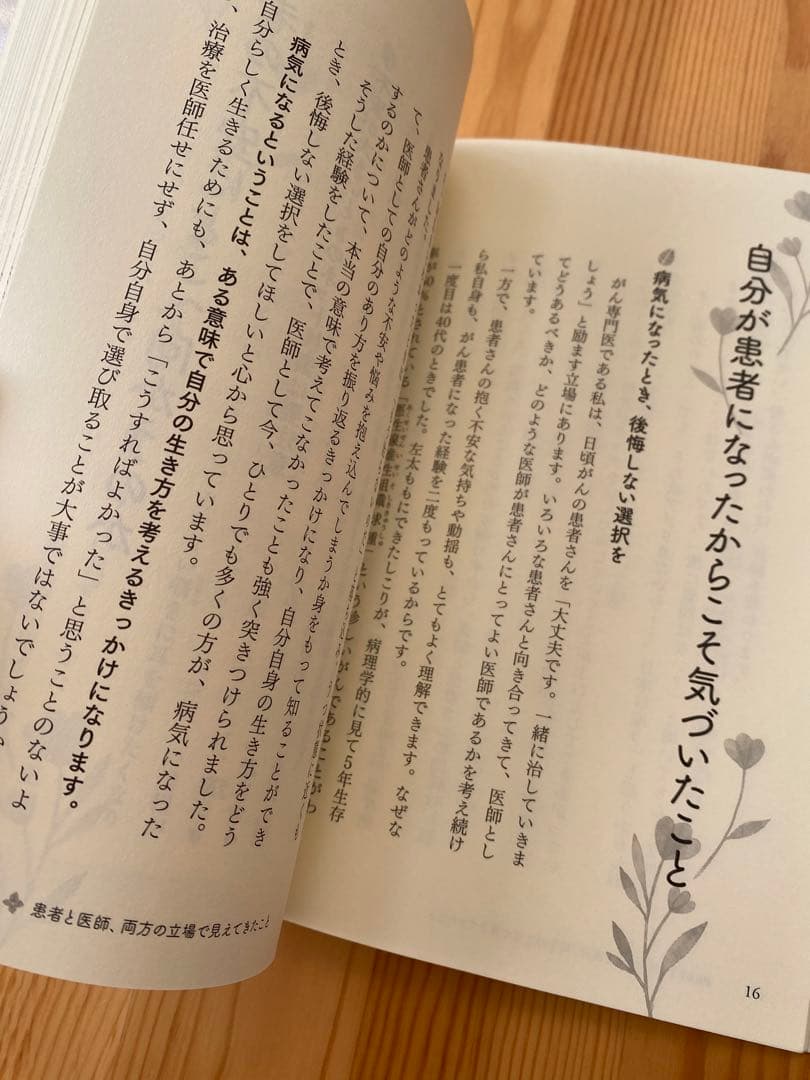 自分が患者になったからこそ気づいたこと
病気になったとき、後悔しない選択を
がん専門医である私は、日頃がんの患者さんを「大丈夫です。一緒に治していきま
しょう」と励ます立場にあります。いろいろな患者さんと向き合ってきて、医師とし
てどうあるべきか、どのような医師が患者さんにとってよい医師であるかを考え続け
ています。
一方で、患者さんの抱く不安な気持ちや動揺も、とてもよく理解できます。なぜな
ら私自身も、がん患者になった経験を二度もっているからです。
一度目は40代のときでした。左太ももにできたしこりが、病理学的に見て5年生存
16
患者さんがどのような不安や悩みを抱え込んでしまうか身をもって知ることができ
て、医師としての自分のあり方を振り返るきっかけになり、自分自身の生き方をどう
するのかについて、本当の意味で考えてこなかったことも強く突きつけられました。
そうした経験をしたことで、医師として今、ひとりでも多くの方が、病気になった
とき、後悔しない選択をしてほしいと心から思っています。
病気になるということは、ある意味で自分の生き方を考えるきっかけになります。
自分らしく生きるためにも、あとから「こうすればよかった」と思うことのないよ
、治療を医師任せにせず、自分自身で選び取ることが大事ではないでしょうか
患者と医師、両方の立場で見えてきたこと